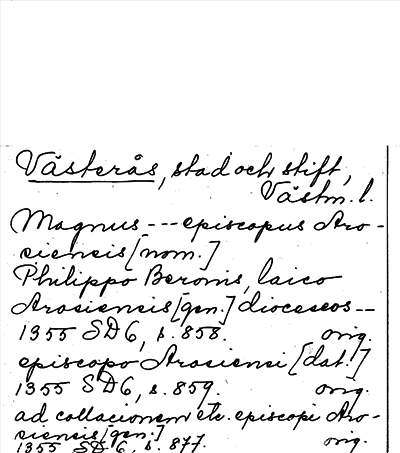 Västerås, stad och stift,
Västm. l.
Magnus --- episcopus Aro-
siensis [nom.]
Philippo Beronis, laico
Arosiensis [gen.] dioceseos --
1355 SD6, s. 858. orig.
episcopo Arosiensi [dat.]
1355 SD6, s. 859. orig.
ad collacionem etc. episcopi Aro-
siensis [gen.]
1355 SD 6, s. 877. orig.